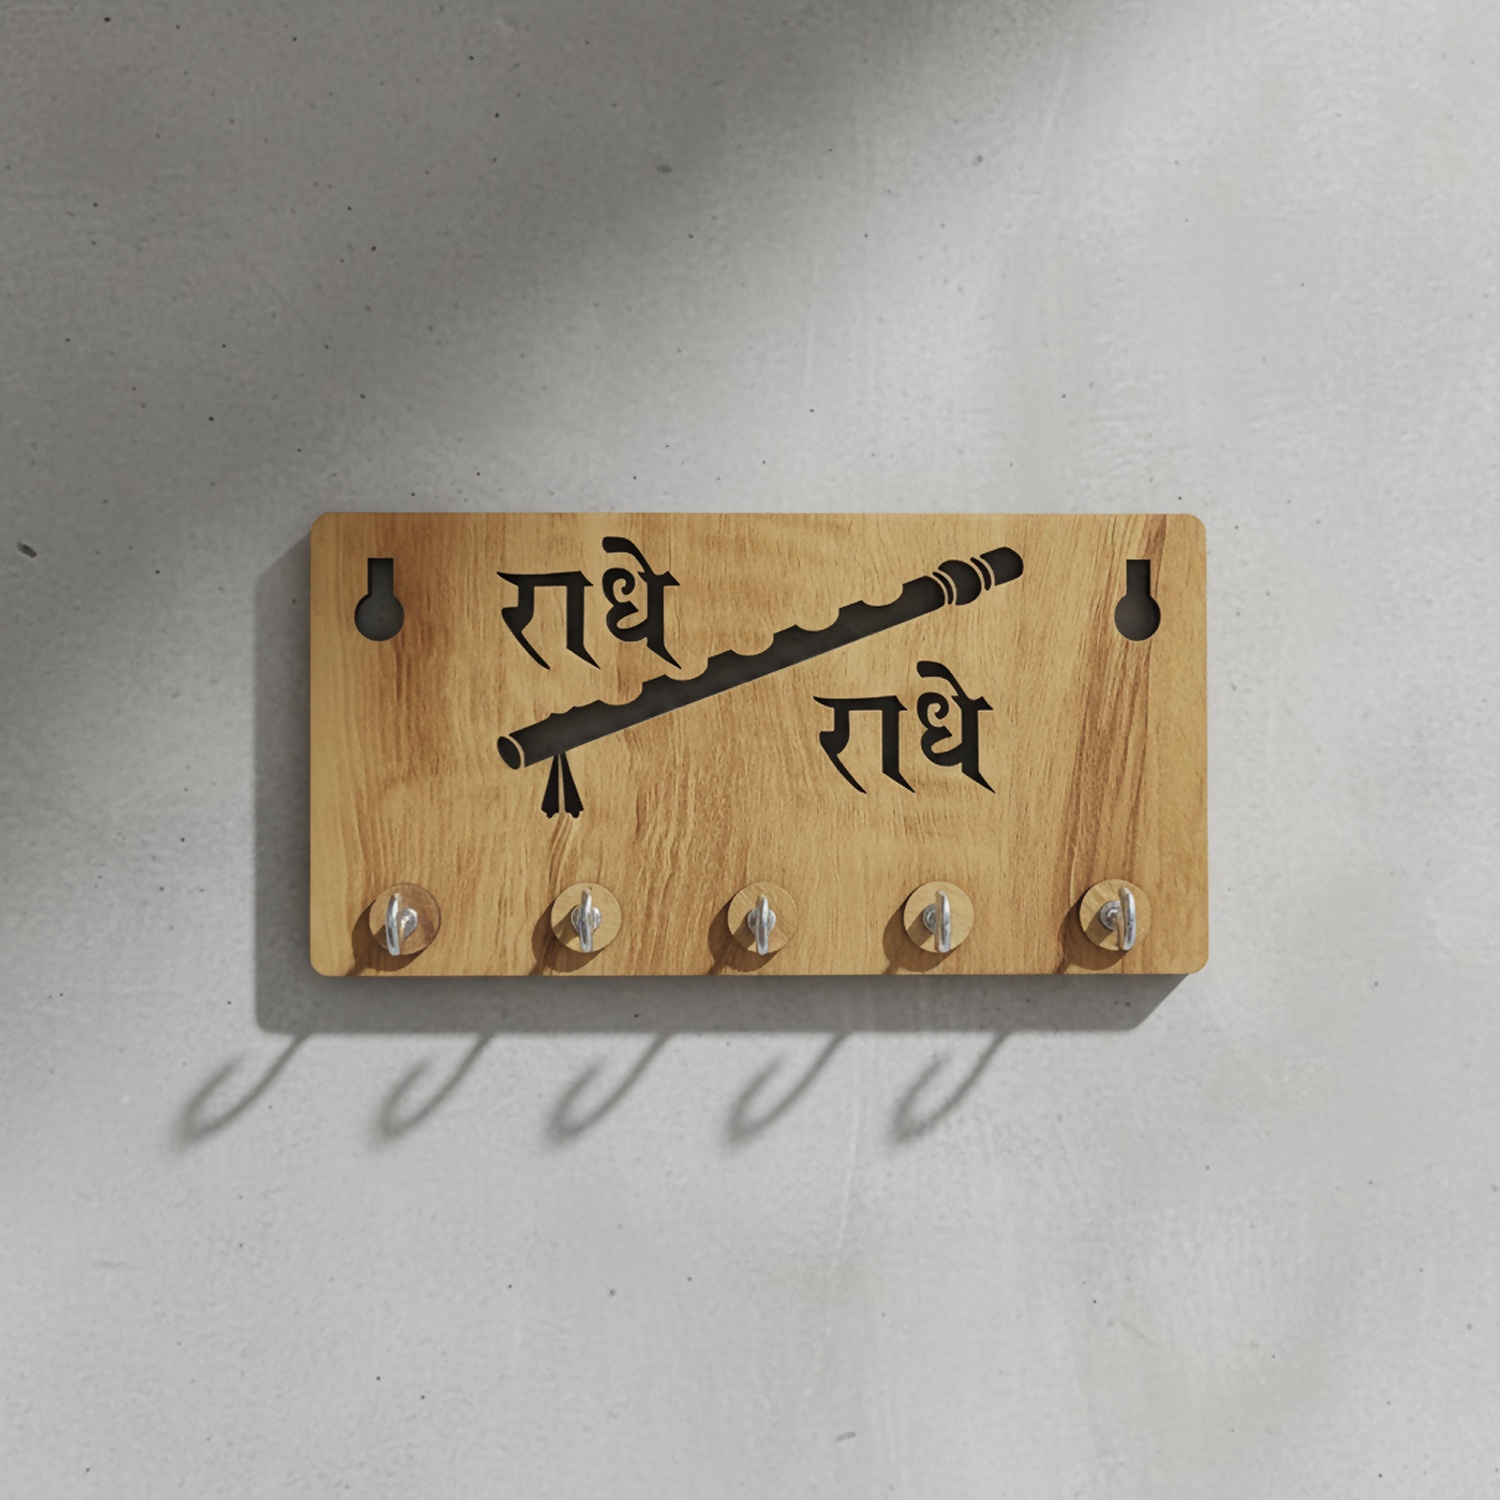 राधे
राधे